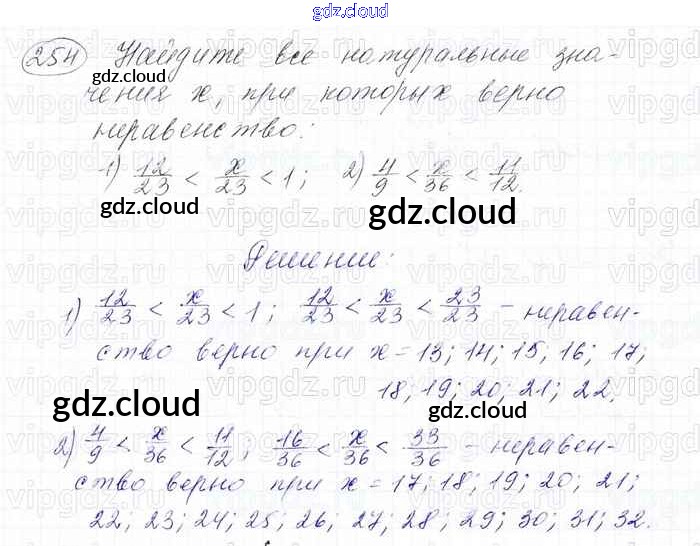 gdz.cloud
254 Найдите все натуральные зна-
gdz.cloud
чения x, при которых верно
неравенство:
1) 12/23 < x/23 < 1; 2) 4/9 < x/36 < 11/12.
gdz.cloud gdz.cloud
Решение:
1) 12/23 < x/23 < 1; 12/23 < x/23 < 23/23 – неравен-
ство верно при x = 13; 14; 15; 16; 17;
18; 19; 20; 21; 22.
gdz.cloud gdz.cloud
2) 4/9 < x/36 < 11/12; 16/36 < x/36 < 33/36 – неравен-
ство верно при x = 17; 18; 19; 20; 21;
22; 23; 24; 25; 26; 27; 28; 29; 30; 31; 32.